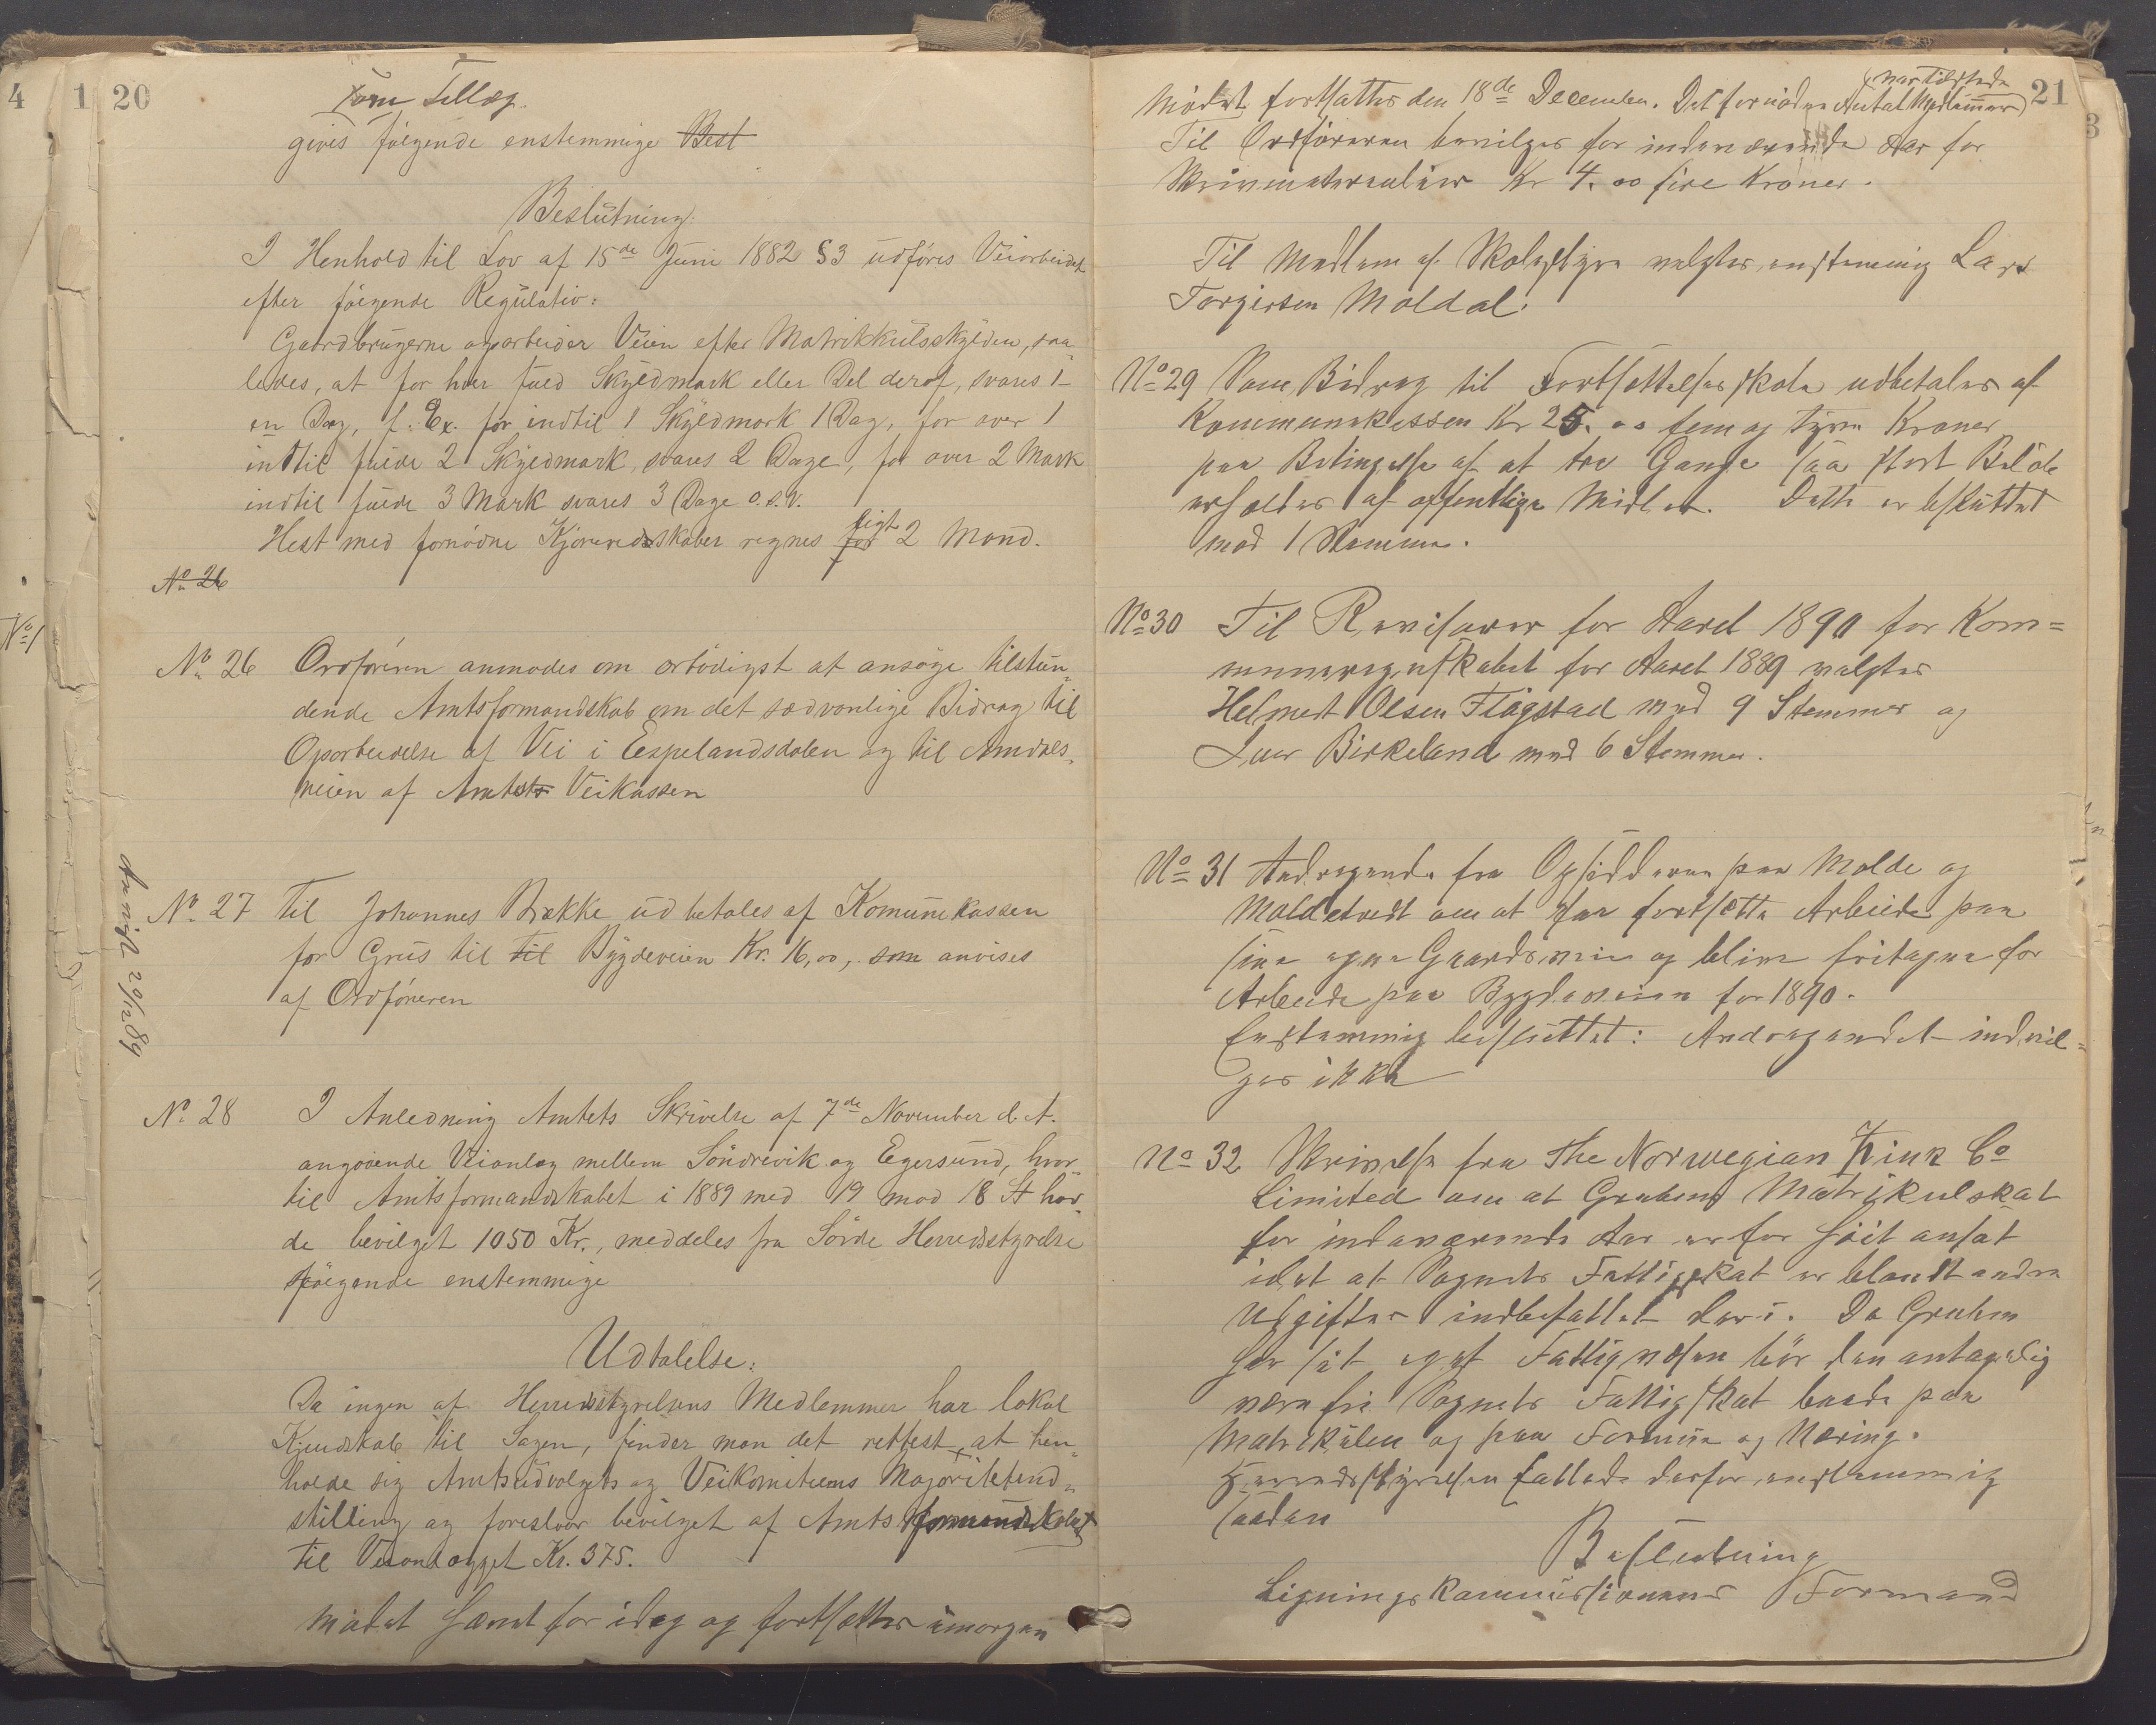 20
Som Tillæg
gives følgende enstemmige Best
Beslutning:
I Henhold til Lov af 15de Juni 1882 §3 udføres Veiarbeidet
efter følgende Regulativ:
Gaardbrugerne oparbeider Veien efter Matrikkulsskylden, saa-
ledes, at for hver fuld Skyldmark eller Del deraf, svares 1-
en Dag, f. Ex. for indtil 1 Skyldmark 1 Dag, for over 1
indtil fulde 2 Skyldmark, svares 2 Dage, for over 2 Mark
indtil fulde 3 Mark svares 3 Dage o.s.v.
Hest med fornødne Kjøreredskaber regnes for ligt 2 Mand.
No 26
No 26 Ordføreren anmodes om ærbødigst at ansøge tilstun-
dende Amtsformandskab om det sædvanlige Bidrag til
Oparbeidelse af Vei i Espelandsdalen og til Amdals-
veien af Amtets Veikassen
Anvist 20/12 89
No 27 Til Johannes Bække udbetales af Komunekassen
for Grus til til Bygdeveien Kr. 16,00, som anvises
af Ordføreren
No 28 I Anledning Amtets Skrivelse af 7de November d.A.
angaaende Veianlæg mellem Søndrevik og Egersund, hvor-
til Amtsformandskabet i 1889 med 19 mod 18 St hav-
de bevilget 1050 Kr., meddeles fra Søvde Herredsstyrelse
følgende enstemmige
Udtalelse:
Da ingen af Herredsstyrelsens Medlemmer har lokal
Kjendskab til Sagen, finder man det rettest, at hen-
holde sig Amtsudvalgets og Veikomiteens Majoritetind-
stilling og foreslaar bevilget af Amtsformandskabet
til Veianlægget Kr. 375.
Mødet hævet for idag og fortsættes imorgen
21
Mødet fortsattes den 18de December. Det fornødne Antal Medlemmer var tilstede
Til Ordføreren bevilges for indeværende Aar for
Skrivematerialier Kr 4.00 fire Kroner.
Til Medlem af Skolestyre valgtes enstemmig Lars
Torgiersen Moldal.
No 29 Som Bidrag til Fortsættelsesskole udbetales af
Kommunekassen Kr 25.00 fem og tyve Kroner
paa Betingelse af at tre Gange saa stort Beløb
erholdes af offentlige Midler. Dette er besluttet
mod 1 Stemme.
No 30 Til Revisorer for Aaret 1890 for Kom=
muneregnskabet for Aaret 1889 valgtes
Helmert Olsen Fløgstad med 9 Stemmer og
Iver Birkeland med 6 Stemmer.
No 31 Andragende fra Opsidderne paa Molde og
Moldetvedt om at faa fortsætte Arbeide paa
sine egne Gaardsveie og blive fritagne for
Arbeide paa Bygdeveien for 1890.
Enstemmig besluttet: Andragendet indvil=
ges ikke
No 32 Skrivelse fra The Norwegian Zink Co
Limited om at Grubens Matrikulskat
for indeværende Aar er for høit ansat
idet at Sognets Fattigskat er blandt andre
Udgifter indbefattet deri. Da Gruben
har sit eget Fattigvæsen bør den antagelig
være fri Sognets Fattigskat baade paa
Matrikulen og paa Formue og Næring.
Herredsstyrelsen fattede derfor enstemmig
saadan
Beslutning
Ligningskommissionens Formand